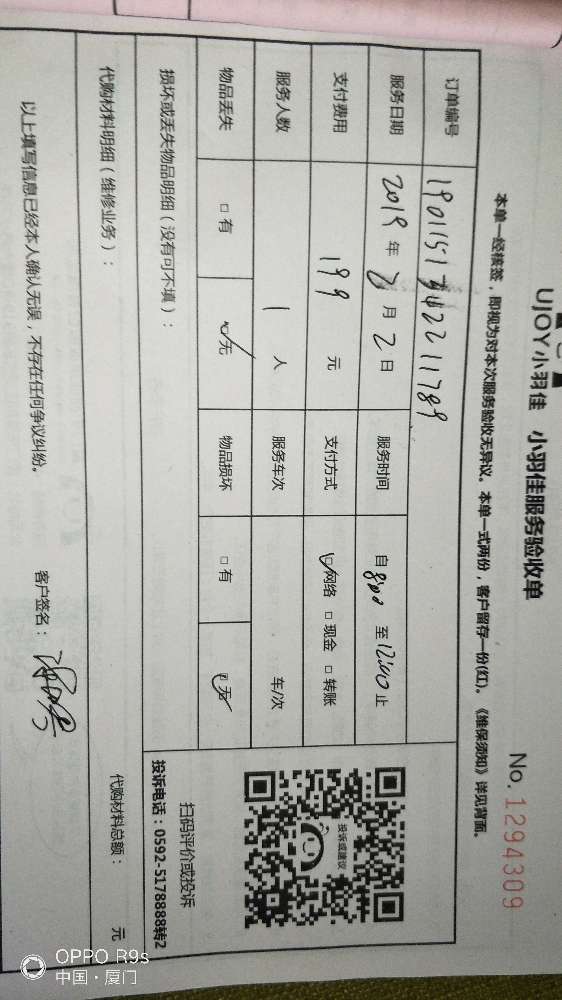 UJOY小羽佳 小羽佳服务验收单
No. 1294309
本单一经核签，即视为对本次服务验收无异议。本单一式两份，客户留存一份(红)。《维保须知》详见背面。
订单编号
服务日期 2019 年 2 月 2 日 服务时间 自 8:00 至 12:00 止
支付费用 199 元 支付方式 ☑网络 □现金 □转账
服务人数 1 人 服务车次 车/次
物品丢失 □有 ☑无 物品损坏 □有 ☑无
损坏或丢失物品明细（没有可不填）：
投诉或建议
扫码评价或投诉
投诉电话：0592-5178888转2
代购材料明细（维修业务）： 代购材料总额： 元
以上填写信息已经本人确认无误，不存在任何争议纠纷。 客户签名：
OPPO R9s
中国·厦门